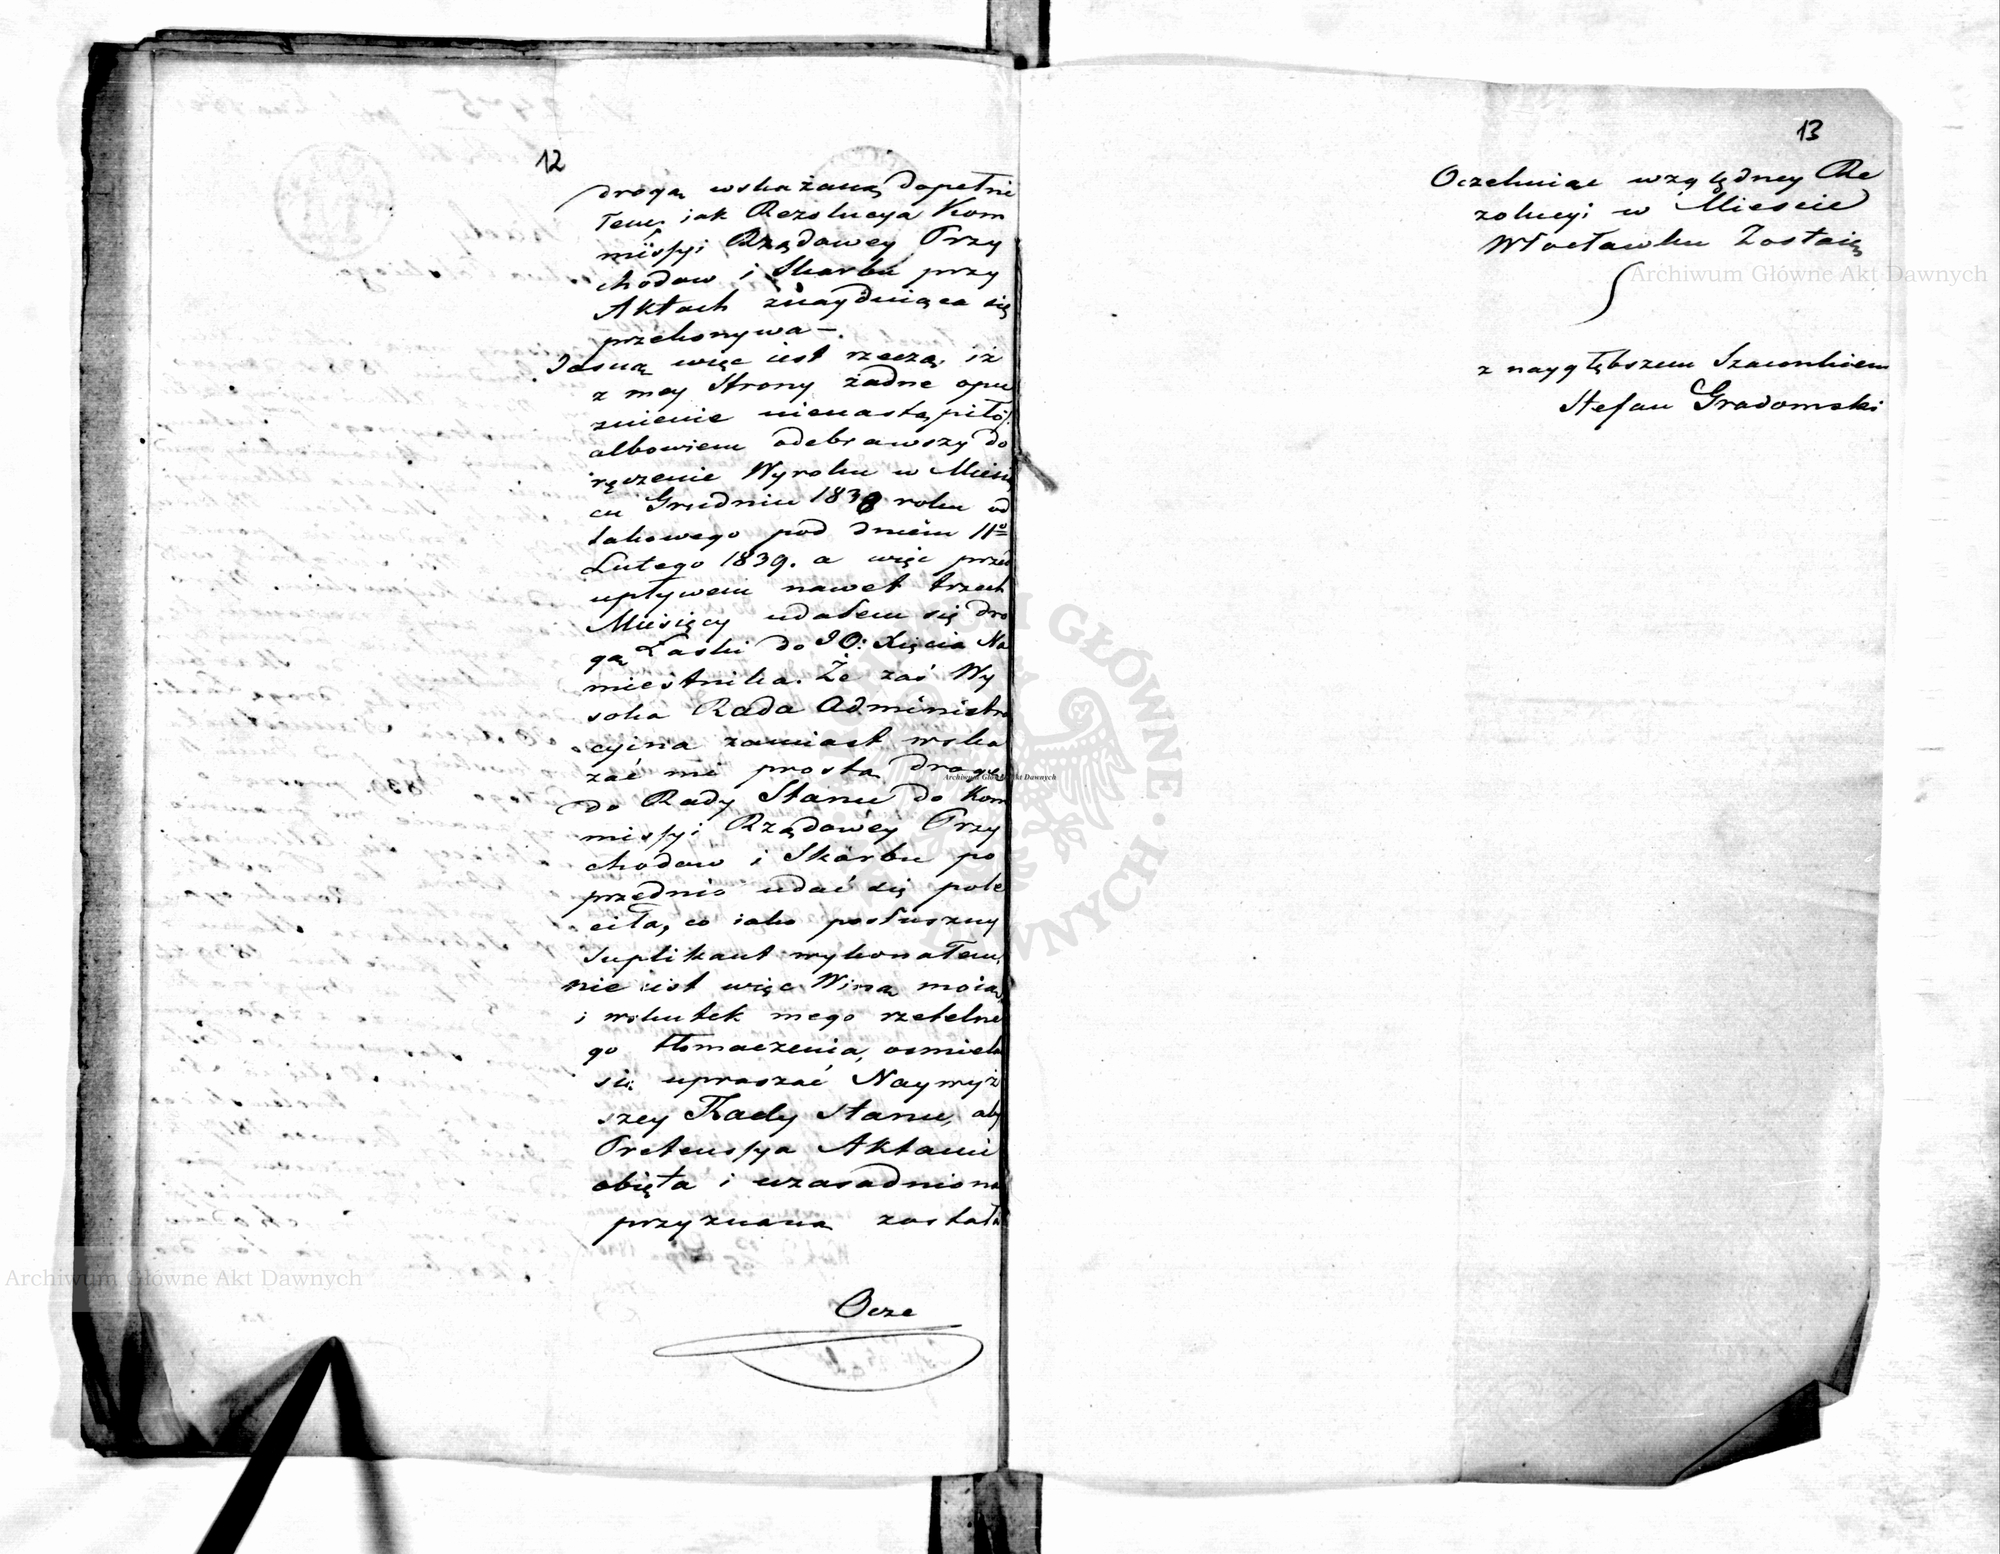 12
drogą wskazaną dopełni
łem, jak Rezolucya Kom
missyi Rządowey Przy
chodow i Skarbu przy
Aktach znayduiąca się
przekonywa —.
Jasną więc iest rzeczą, iż
z mey Strony żadne opu
znienie nienastąpiło,
albowiem odebrawszy do
ręczenie Wyroku w Miesią
cu Grudniu 1838 roku od
takowego pod dniem 11º
Lutego 1839. a więc przed
upływem nawet trzech
Miesięcy udałem się dro
gą Łaski do JO: Xięcia Na
miestnika. Że zaś Wy
soka Rada Administra
cyina zamiast wska
zać mi prostą drogę
do Rady Stanu do Kom
missyi Rządowey Przy
chodow i Skarbu po
przednio udać się pole
ciła, co iako posłuszny
Suplikant wykonałem,
nie iest więc Winą moią,
i wskutek mego rzetelne
go tłomaczenia, osmielam
się upraszać Naywyż
szey Rady Stanu, aby
Pretenssya Aktami
obięta i uzasadniona
przyznaną została
Ocze
13
Oczekuiąc względney Re
zolucyi w Mieście
Włocławku Zostaię
z naygłębszem Szacunkiem
Stefan Gradomski
Archiwum Główne Akt Dawnych
Archiwum Główne Akt Dawnych
Archiwum Główne Akt Dawnych